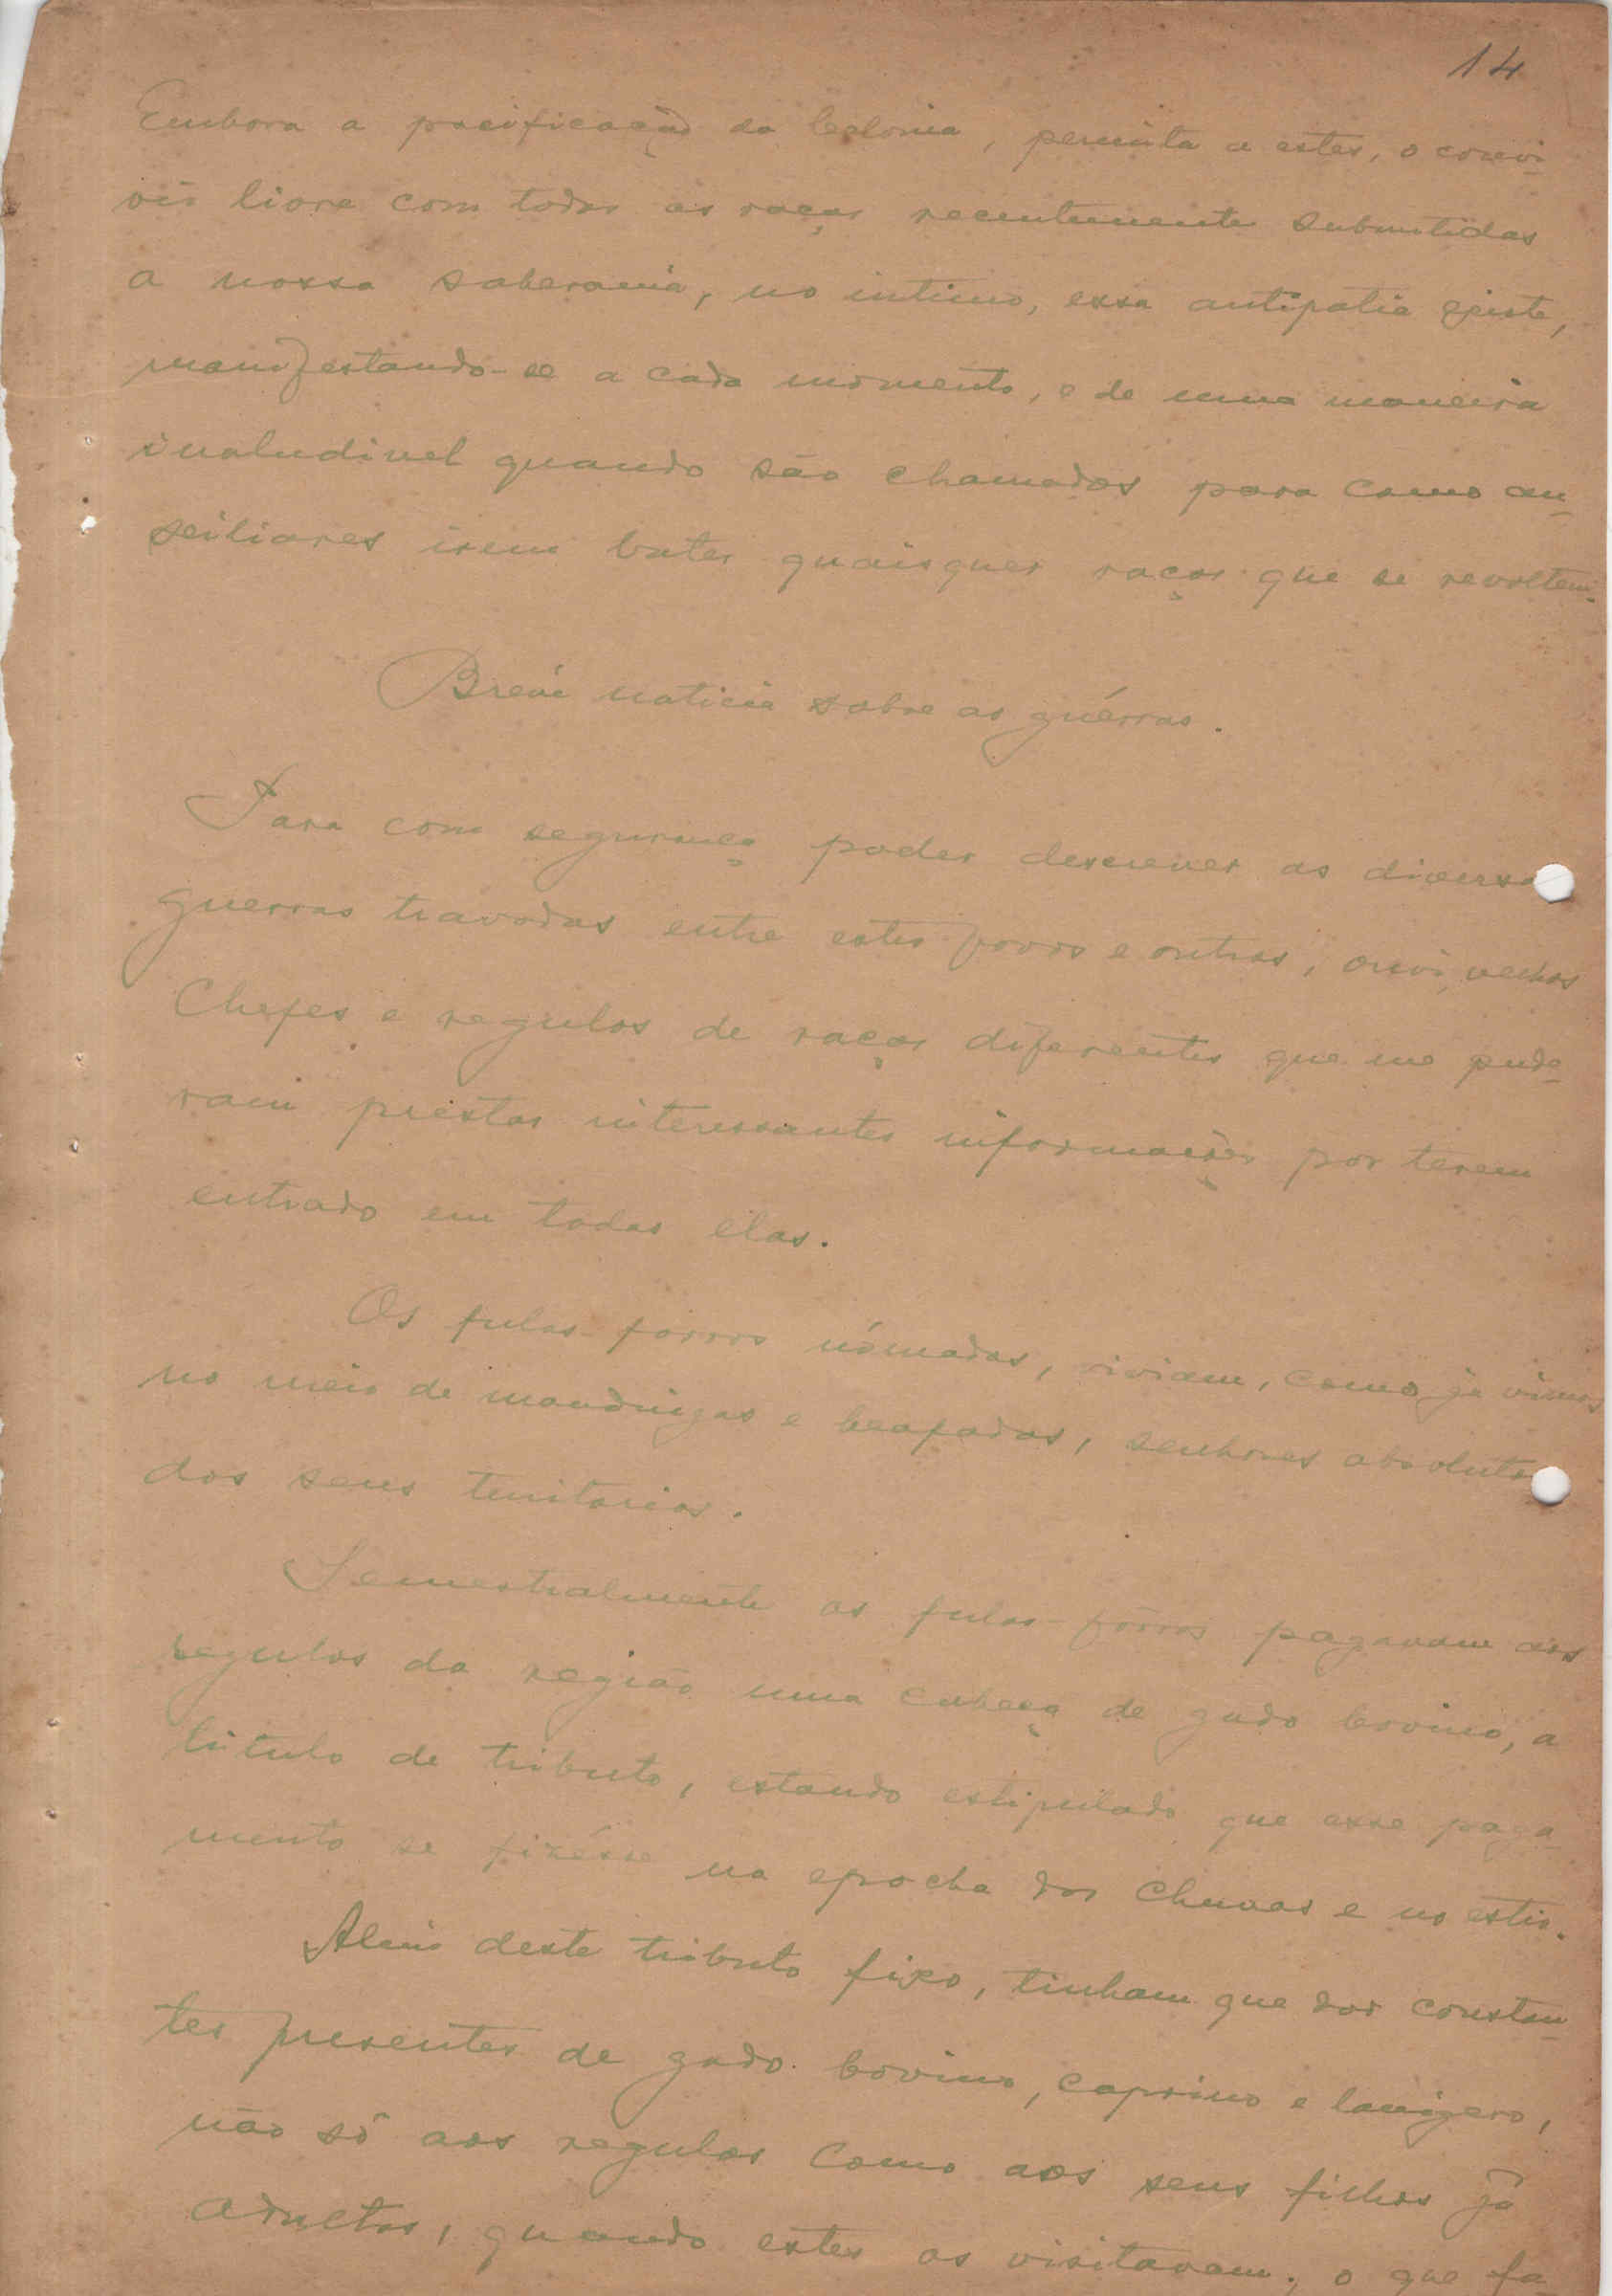 14
Embora a pacificação da Colonia, permita a estes, o convi-
vio livre com todas as raças recentemente submetidas
a nossa soberania, no intimo, essa antipatia existe,
manifestando-se a cada momento, e de uma maneira
inaludivel quando são chamados para como au-
xiliares irem bater quaisquer raças que se revoltem.
Bréve noticia sobre as guérras.
Para com segurança poder descrever as diversas
guerras travadas entre estes povos e outros, ouvi, velhos
Chefes e regulos de raças diferentes que me pude-
ram prestar interessantes informações por terem
entrado em todas elas.
Os fulas-forros nómadas, viviam, como já vimos
no meio de mandingas e beafadas, senhores absolutos
dos seus territorios.
Semestralmente os fulas-fôrros pagavam aos
regulos da região uma cabeça de gado bovino, a
titulo de tributo, estando estipulado que esse paga-
mento se fizésse na epocha das chuvas e no estio.
Alem deste tributo fixo, tinham que dar constan-
tes presentes de gado bovino, caprino e lanigero,
não só aos regulos como aos seus filhos já
adultos, quando estes os visitavam, o que fa